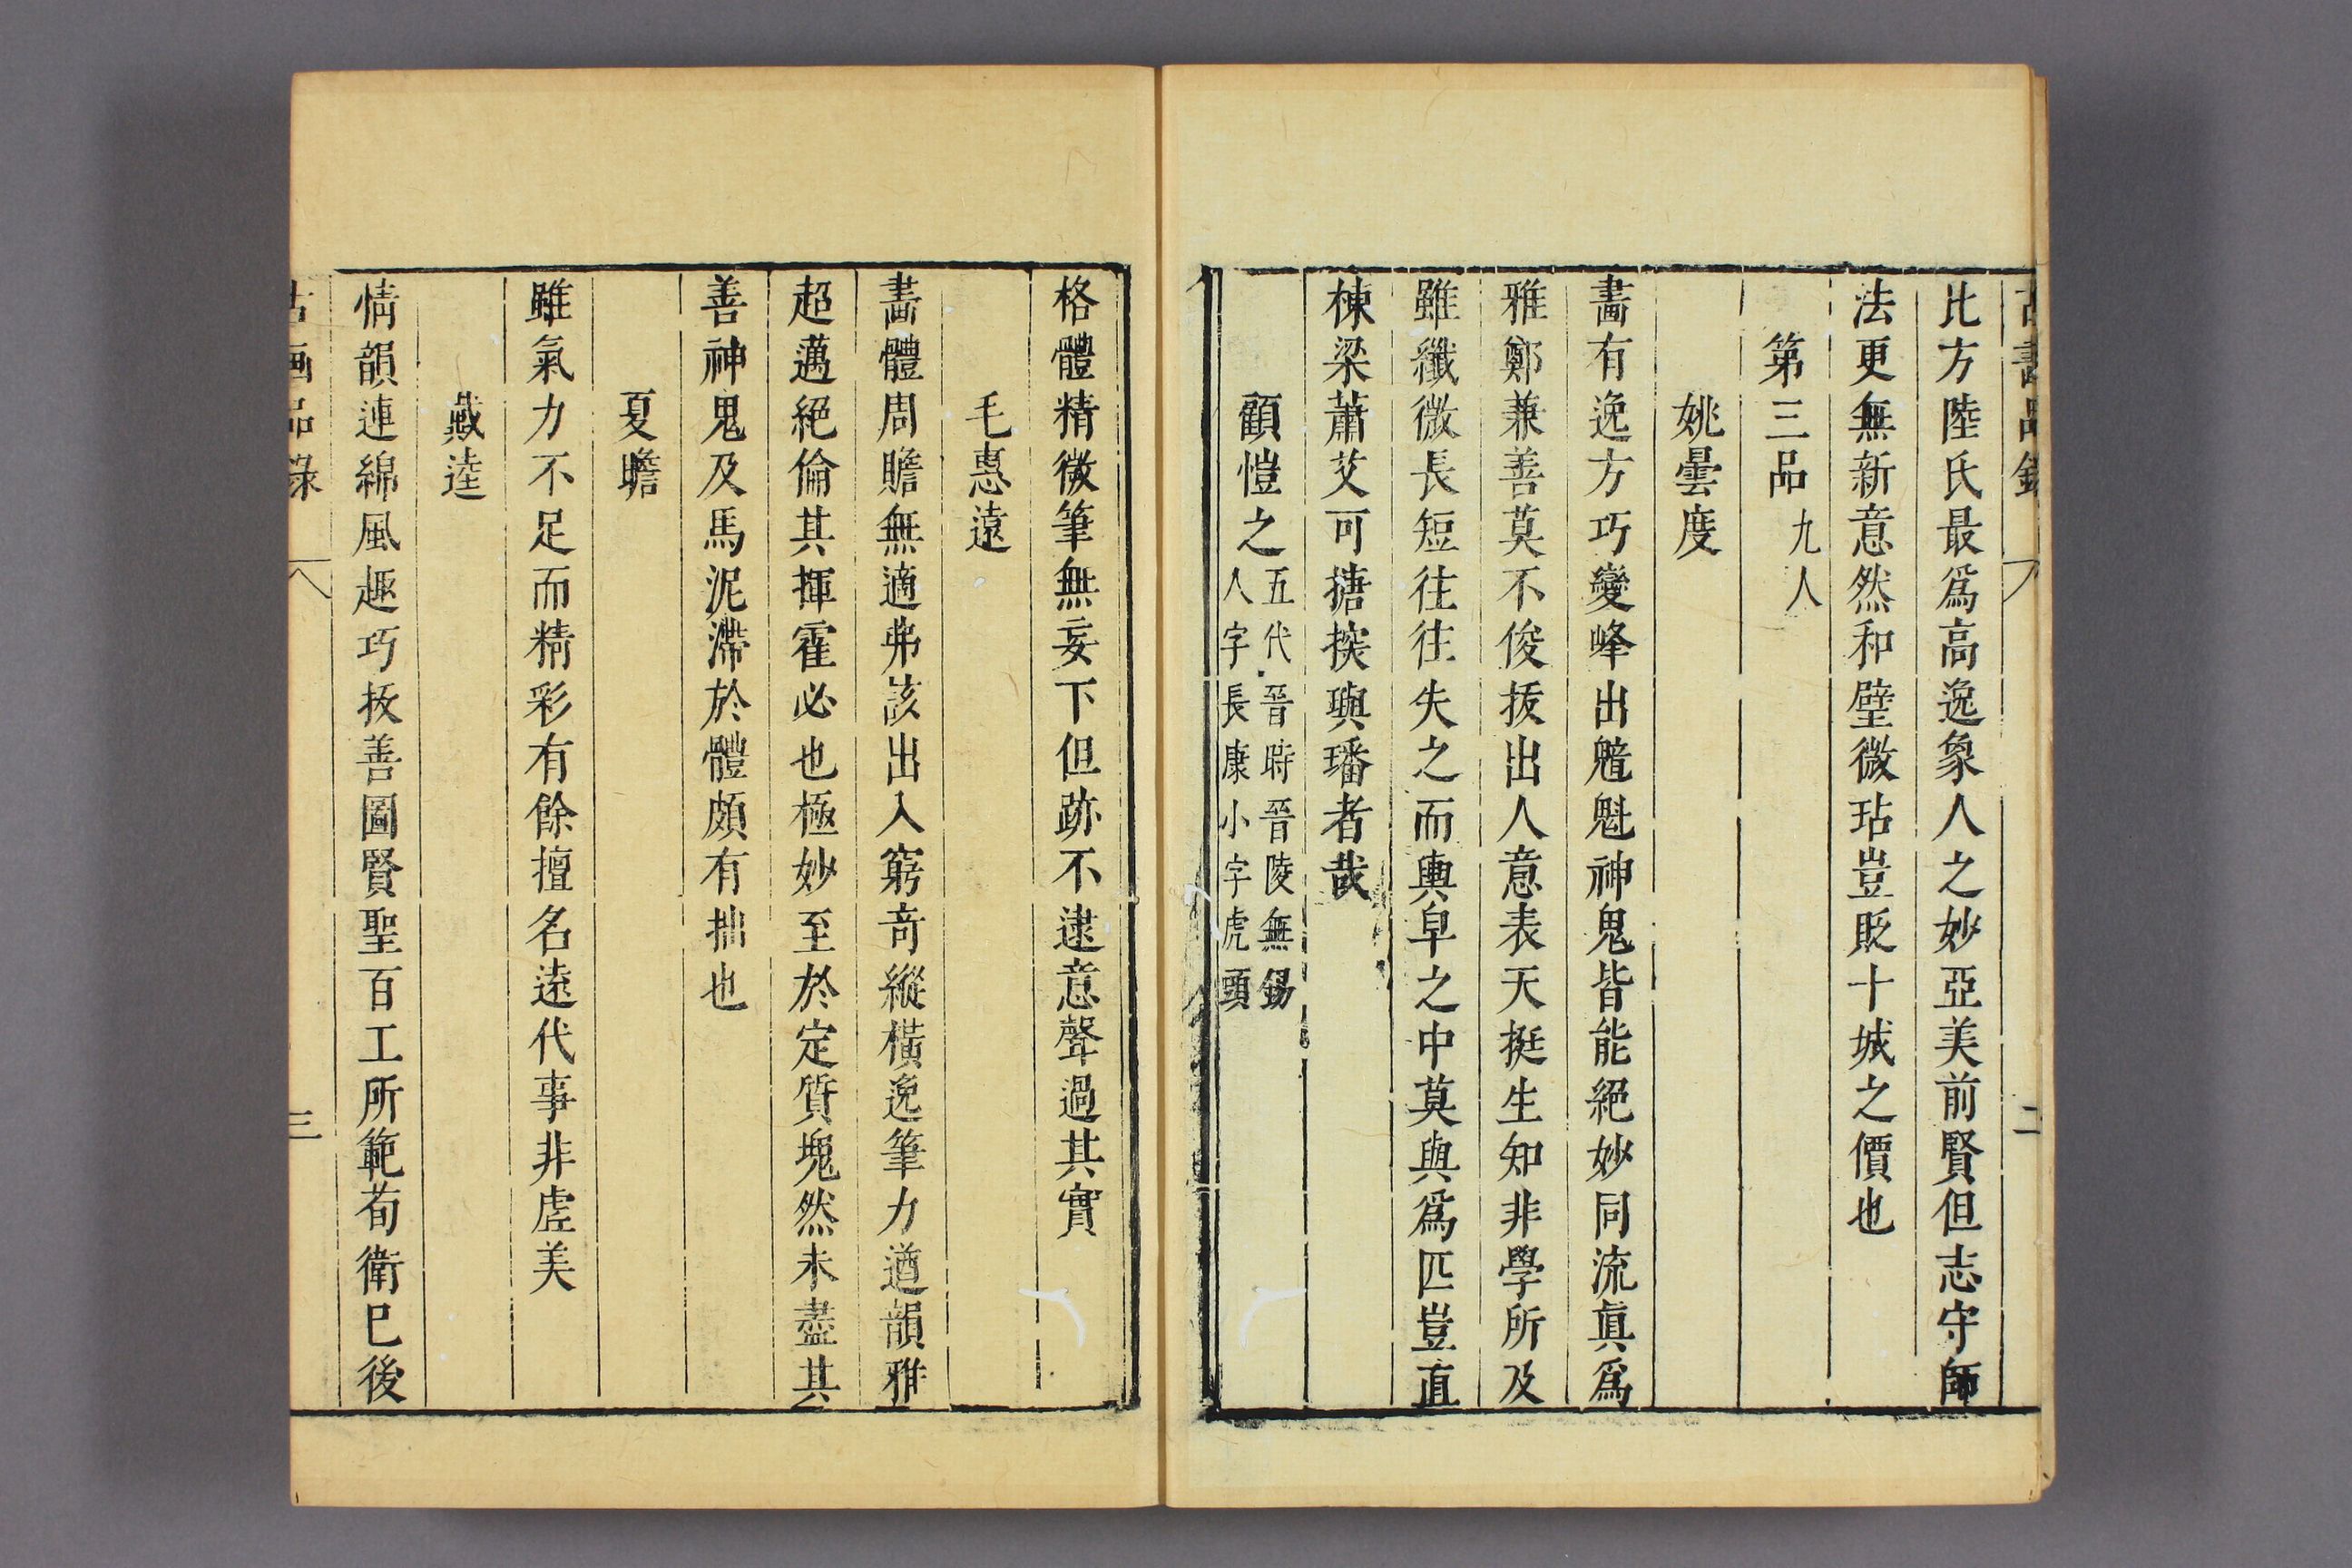 古畫品錄
二
比方陸氏最爲高逸象人之妙亞美前賢但志守師
法更無新意然和璧微玷豈貶十城之價也
第三品九人
姚曇度
畫有逸方巧變峰出魑魁神鬼皆能絕妙同流眞爲
雅鄭兼善莫不俊拔出人意表天挺生知非學所及
雖纖微長短往往失之而輿皁之中莫與爲匹豈直
棟梁蕭艾可搪揬璵璠者哉
顧愷之五代晉時晉陵無錫
人字長康小字虎頭
格體精微筆無妄下但跡不逮意聲過其實
毛惠遠
畫體周贍無適弗該出入窮竒縱橫逸筆力遒韻雅
超邁絕倫其揮霍必也極妙至於定質塊然未盡其
善神鬼及馬泥滯於體頗有拙也
夏瞻
雖氣力不足而精彩有餘擅名遠代事非虛美
戴逵
情韻連綿風趣巧拔善圖賢聖百工所範荀衛巳後
古画品錄
三